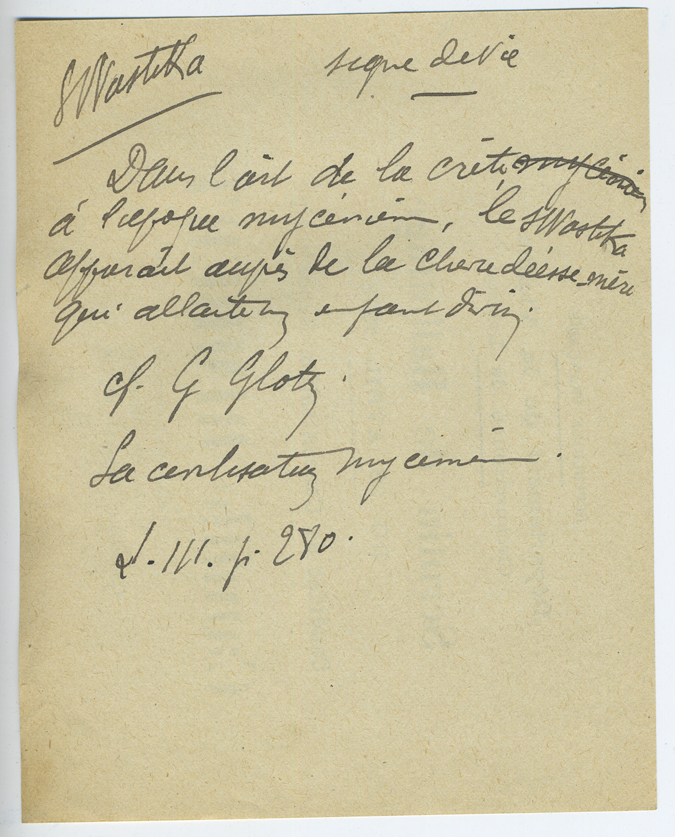 SWastika signe de vie
Dans l'art de la crète mycénien
à l'epoque mycénienne, le SWastika
apparait auprès de la chevre déesse-mère
qui allaite un enfant divin.
cf. G Glotz.
La civilisation mycénienne.
L. III. p. 280.